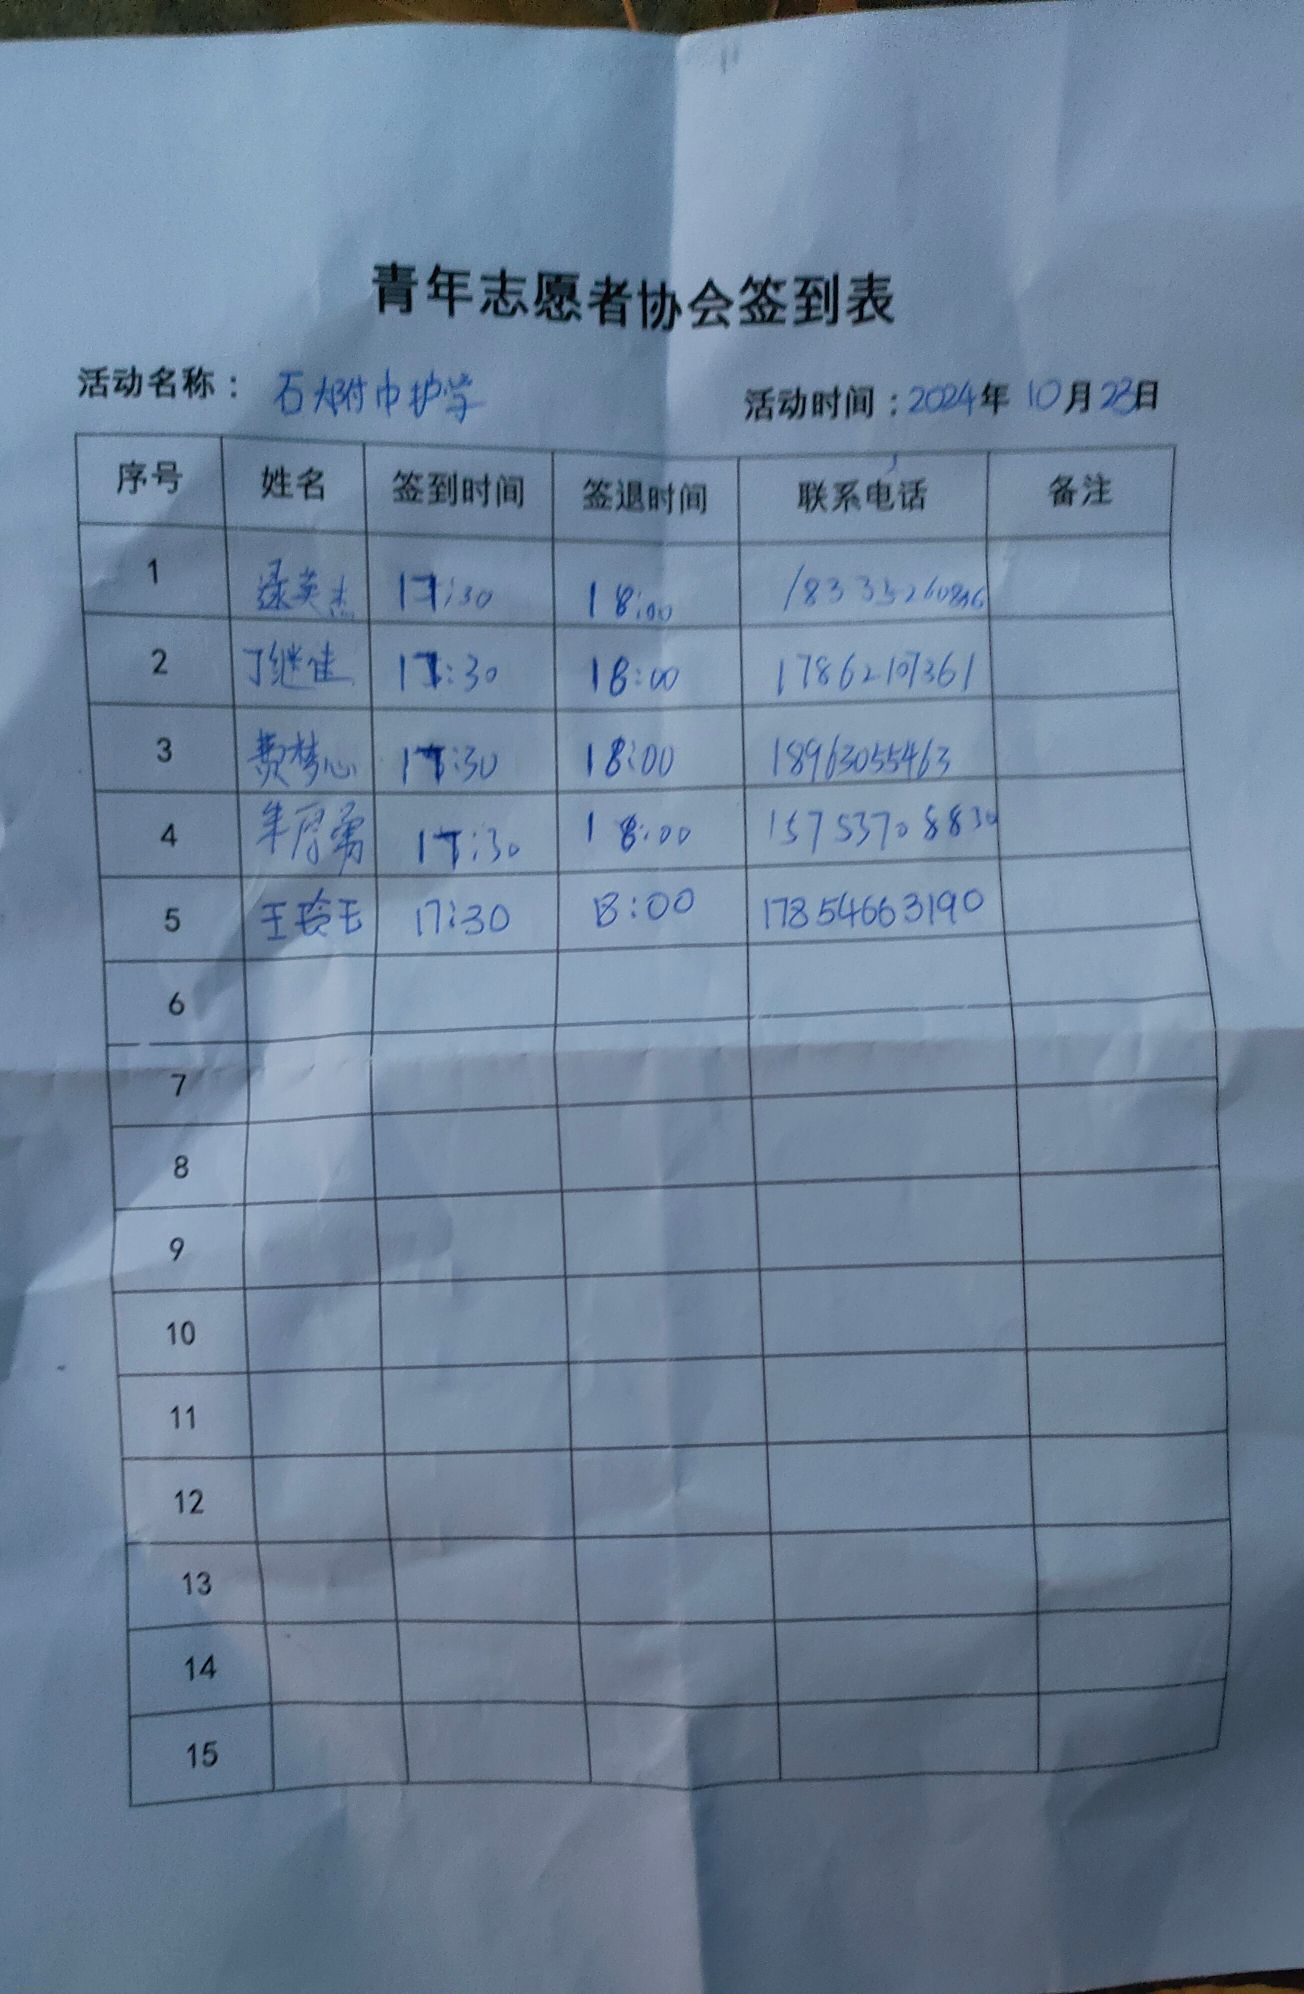 青年志愿者协会签到表
活动名称： 石大附中护学 活动时间：2024年 10月 23日
序号 姓名 签到时间 签退时间 联系电话 备注
1 英杰 17:30 18:00
2 丁继佳 17:30 18:00 17862107361
3 费梦心 17:30 18:00 18963055463
4 17:30 18:00 15753708830
5 王玲玉 17:30 18:00 17854663190
6
7
8
9
10
11
12
13
14
15